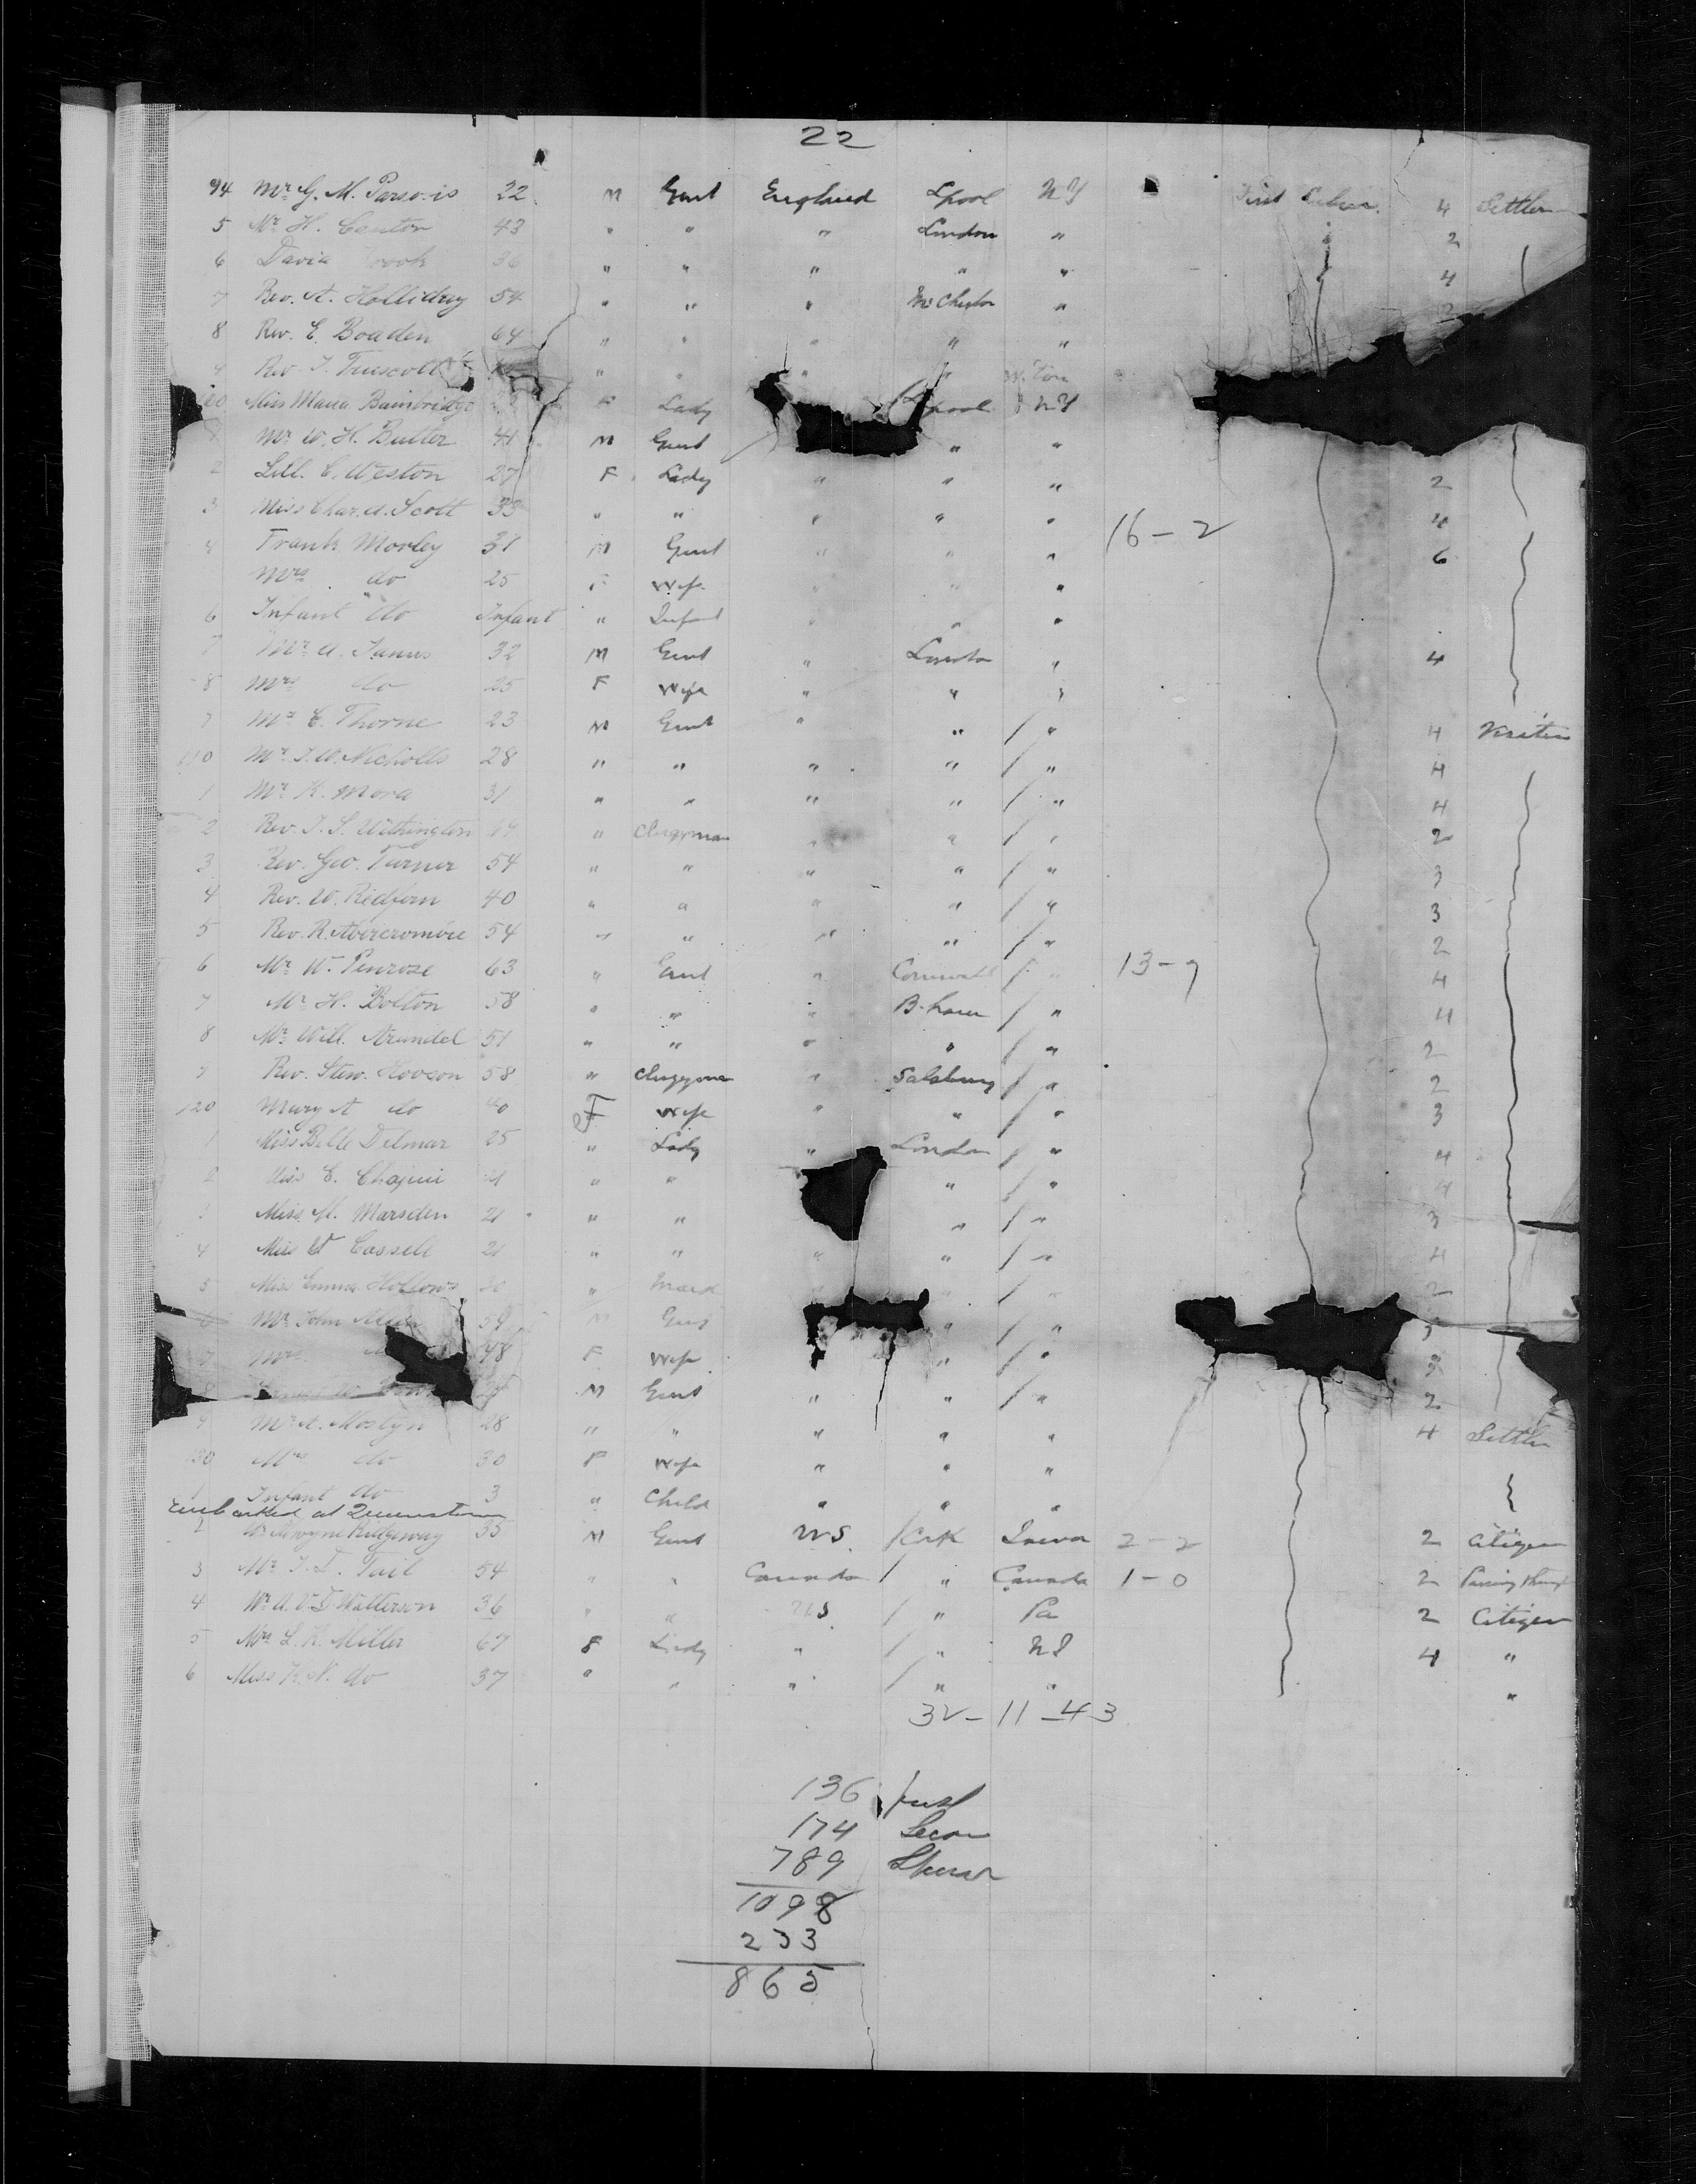 22
94 Mr. G. M. Parsons 22 M Gent England Lpool NY First Cabin 4 Settler
5 Mr. H. Canton 43 " " " London " 2
6 David 36 " " " " " 4
7 Rev. A. Holliday 54 " " " McChester " 2
8 Rev. E. Boaden 64 " " " " "
9 Rev. T. Truscott " " "
100 Miss Maria Bainbridge F Lady Lpool NY
Mr. W. H. Butler 41 M Gent " "
2 Lill. C. Weston 27 F Lady " " " 2
3 Miss Char. A. Scott 33 " " " " " 16-2 4
4 Frank Morley 31 M Gent " " " 6
Mrs do 25 F Wife " " "
6 Infant do Infant " Infant " " "
7 Mr. A. 32 M Gent " London " 4
8 Mrs do 25 F Wife " " "
9 Mr. C. Thorne 23 M Gent " " / " 4 Visitor
110 Mr. J. W. Nicholls 28 " " " " / " 4
1 Mr. K. Mora 31 " " " " / " 4
2 Rev. J. S. Withington 69 " Clergyman " " / " 2
3 Rev. Geo. Turner 54 " " " " / " 3
4 Rev. W. Redfern 40 " " " " / " 3
5 Rev. R. Abercrombie 54 " " " " / " 2
6 Mr. W. Penrose 63 " Gent " Cornwall / " 13-9 4
7 Mr. H. Bolton 58 " " " B.ham / " 4
8 Mr. Will. Arundel 51 " " " " / " 2
9 Rev. Stew. Hooson 58 " Clergyman " Salsbury / " 2
120 Mary A do 40 F Wife " " / " 3
1 Miss Belle Delmar 25 " Lady " London / " 4
2 Miss E. 21 " " " / " 4
3 Miss M. Marsden 21 " " " / " 3
4 Miss W Cassell 21 " " " " / " 4
5 Miss Emma Hollows 20 " Maid " / " 2
6 Mr. John 59 M Gent " / "
7 Mrs 48 F Wife " / " 3
8 M Gent " " / " 2
9 Mr. A. Mostyn 28 " " " " " 4 Settler
130 Mrs do 30 F Wife " " "
1 Infant do 3 " Child " " "
Embarked at Queenstown
2 Ridgeway 35 M Gent U.S. / Cork Iowa 2-2 2 Citizen
3 Mr. T. D. Tait 54 " " Canada / " Canada 1-0 2 Passing through
4 Mr. A. V. D. Watterson 36 " " US / " Pa 2 Citizen
5 Mrs L. K. Miller 67 F Lady " / " NY 4 "
6 Miss K. N. do 37 " " " / " " "
32-11-43
136 first
174 Secon
789 Steerar
1098
233
865